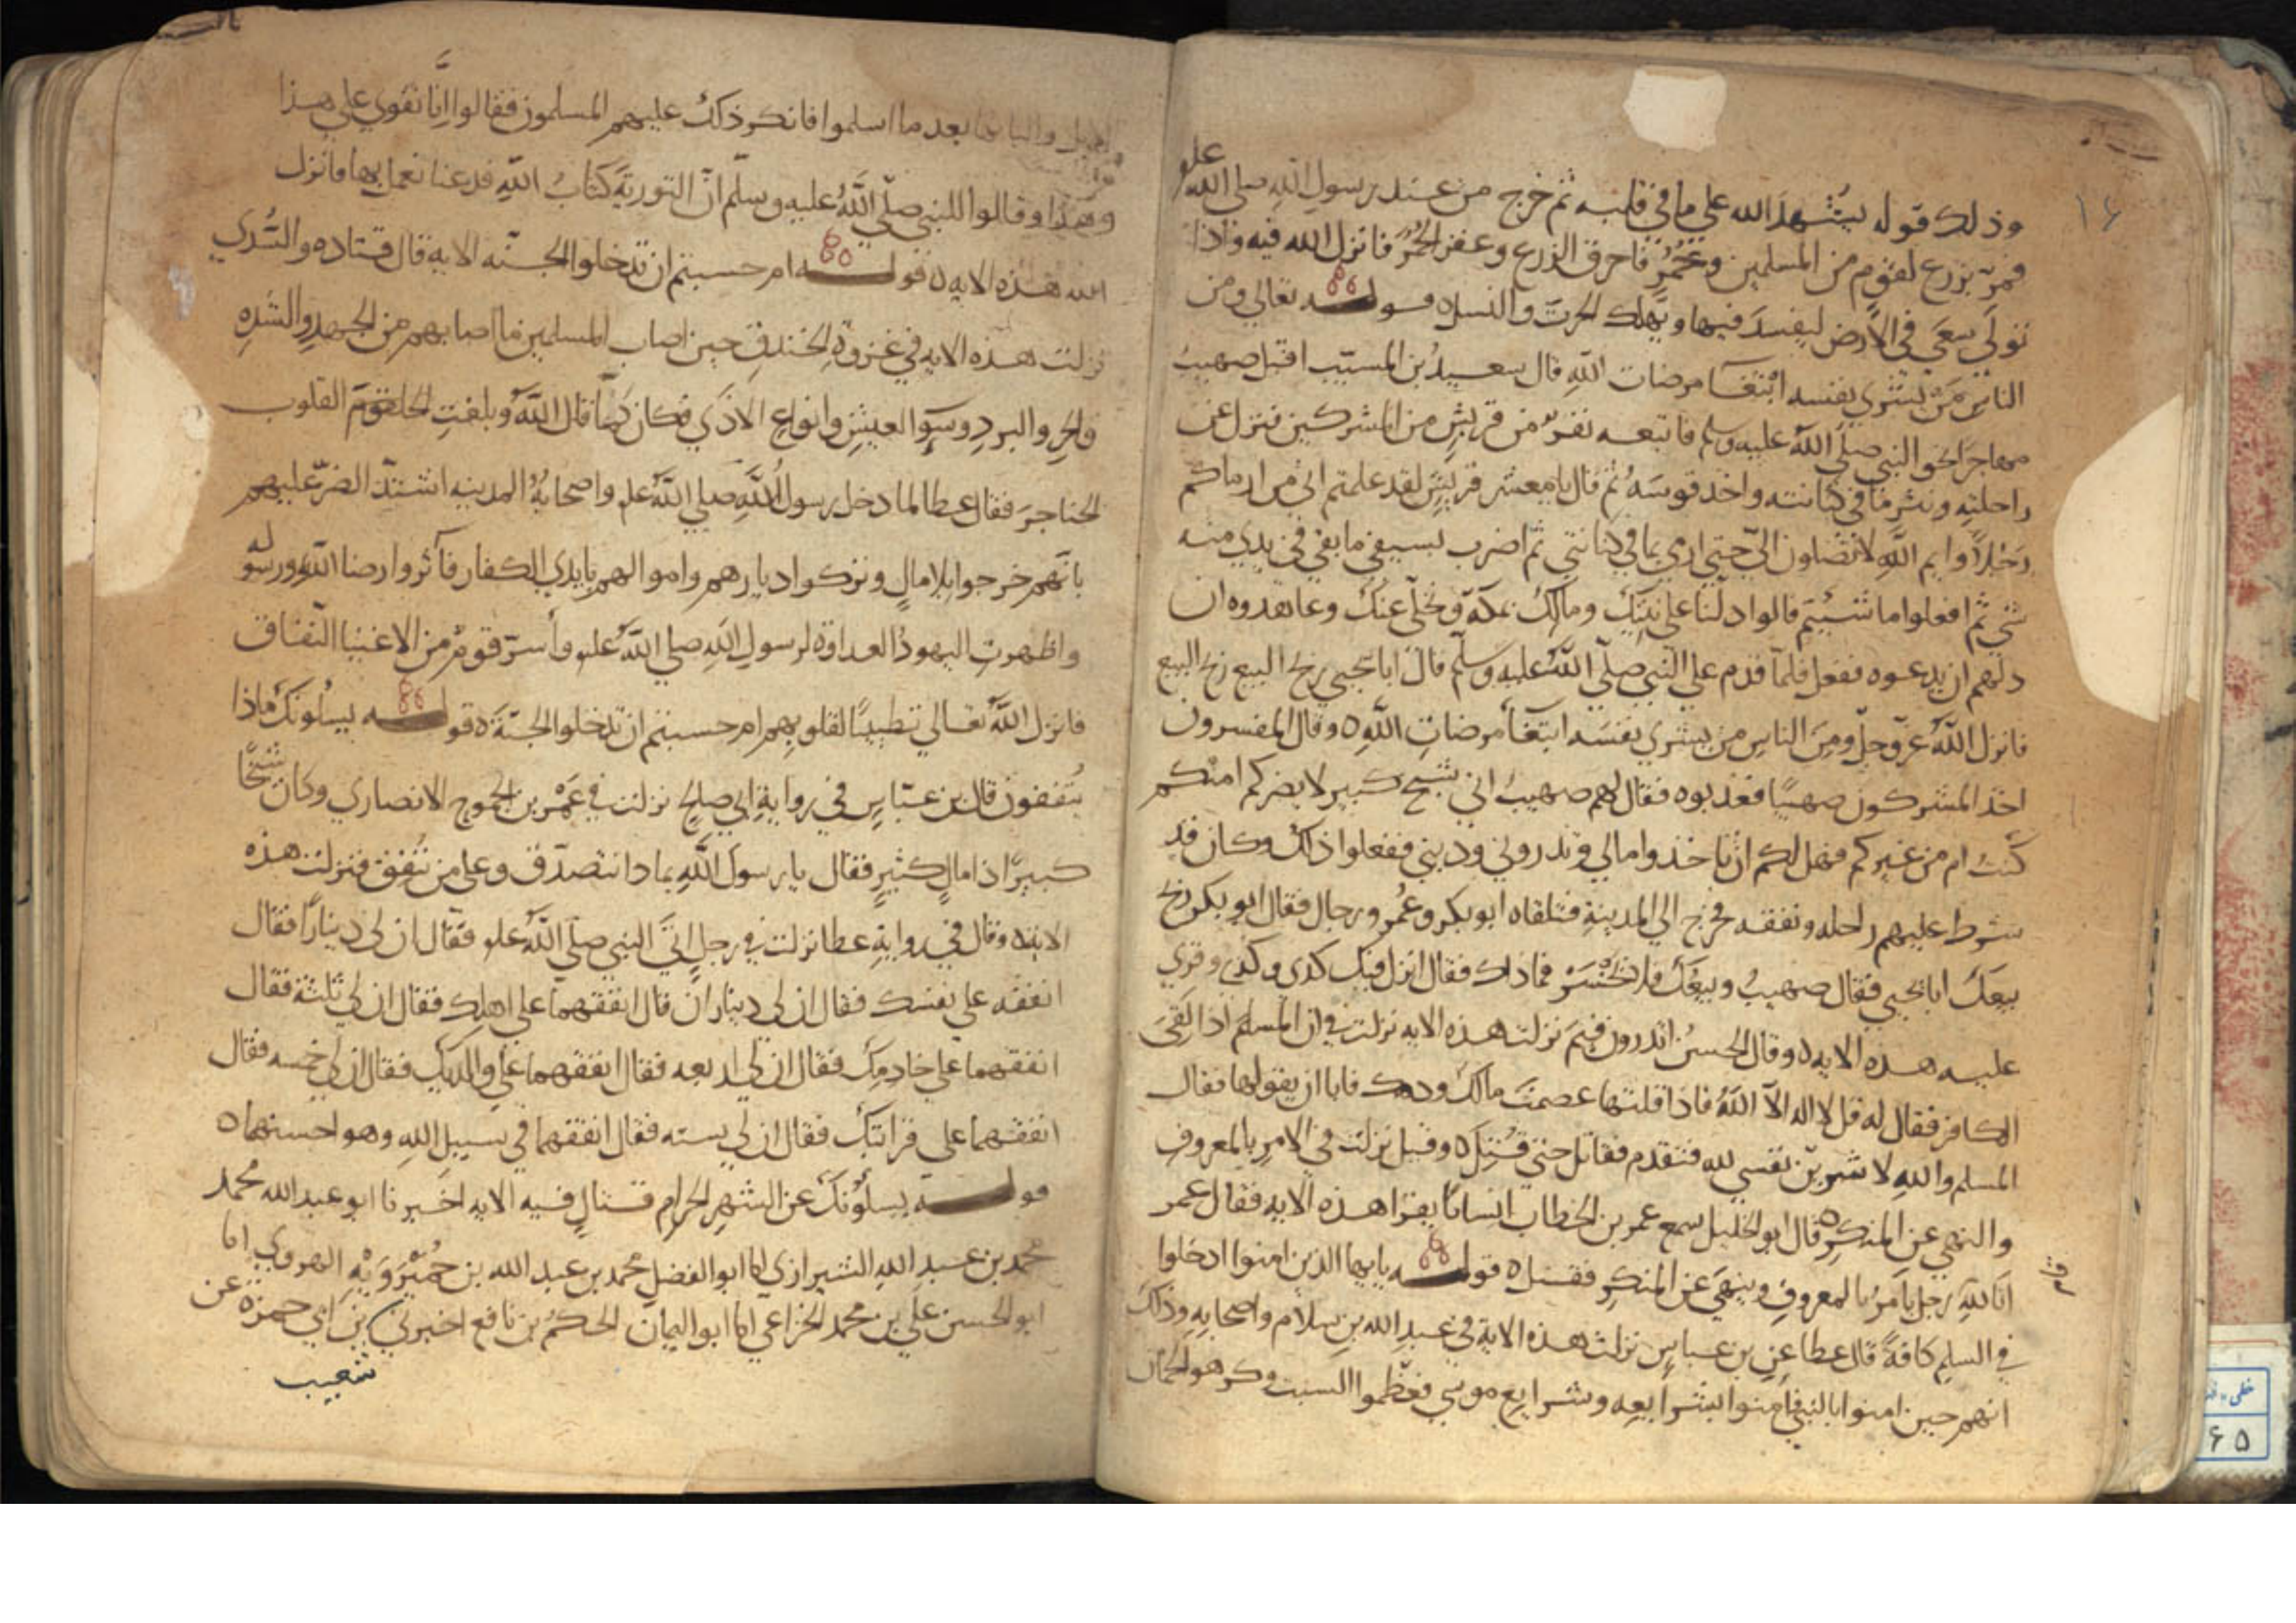 ١٦
وذلك قوله يُشهدُ الله على ما في قلبه ثم خرج من عند رسول الله صلى الله عليه
فمرّ بزرع لقوم من المسلمين وحُمُرٍ فاحرق الزرع وعقر الحُمُرَ فانزل الله فيه واذا
تولّى سعى في الارض ليفسدَ فيها ويُهلك الحرث والنسل ٥ قوله تعالى ومن
الناس مَنْ يشري نفسه ابتغآ مرضات الله قال سعيدُ بن المسيّب اقبل صهيبٌ
مهاجرًا نحو النبي صلى الله عليه وسلم فاتبعه نفرٌ من قريشٍ من المشركين فنزل عن
راحلتِه ونثر ما في كنانته واخذ قوسَهُ ثم قال يا معشر قريشٍ لقد علمتم اني من ارماكم
رجلاً وايم الله لا تصلون اليّ حتى ارمي بما في كنانتي ثم اضرب بسيفي ما بقي في يدي منه
شي ثم افعلوا ما شيتم قالوا دلّنا على بيتِك ومالك بمكة ونخلّي عنك وعاهدوه ان
دلهم ان يدعوه ففعل فلمّا قدم على النبي صلى الله عليه وسلم قال ابا يحيى ربح البيع ربح البيع
فانزل الله عزّ وجلّ ومِنَ الناسِ من يشري نفسَه ابتغآ مرضاتِ الله ٥ وقال المفسرون
اخذ المشركون صهيبًا فعذبوه فقال لهم صهيبٌ اني شيخ كبير لا يضركم امنكم
كنتُ ام من غيركم فهل لكم ان تاخذوا مالي وتذروني وديني ففعلوا ذلك وكان قد
شرط عليهم راحله ونفقه فخرج الى المدينة فتلقاه ابو بكر وعُمرُ ورجال فقال ابو بكر ربح
بيعَك ابا يحيى فقال صهيبٌ وبيعُك فلا تخْسَرْ فما ذاك فقال انزل فيك كذى وكذى وقرى
عليه هذه الايه ٥ وقال الحسنُ اتدرون فيمَ نزلت هذه الايه نزلت في ان المسلم اذا لَقيَ
الكافر فقال له قل لا اله الا الله فاذا قلتها عصمتَ مالك ودمك فابا ان يقولها فقال
المسلم والله لا شرينّ نفسي لله فتقدم فقاتل حتى قُتِلَ ٥ وقيل نزلت في الامرِ بالمعروفِ
والنهي عن المنكرِ ٥ قال ابو الخليل سمع عمر بن الخطاب انسانًا يقرا هذه الايه فقال عمر
انا لله رجل يأمرُ بالمعروفِ وينهَى عن المنكرِ فقتل ٥ قوله يا ايها الذين امنوا ادخلوا
في السلم كافةً قال عطا عن بن عباسٍ نزلت هذه الاية في عبدِ الله بنِ سلام واصحابِهِ وذلك
انهم حين امنوا بالنبي فامنوا بشرايعِه وشرايعِ موسى فعظّموا السبت وكرهوا لحمان
الابل والبانها بعد ما اسلموا فانكر ذلك عليهم المسلمون فقالوا انّا نقوى على هذا
وهذا وقالوا للنبي صلّى الله عليه وسلّم انّ التوريةَ كتابُ الله فدعنا نعمل بها فانزل
الله هذه الايه ٥ قوله ام حسبتم ان تدخلوا الجنّه الايه قال قتاده والسُّدي
نزلت هذه الايه في غزوةِ الخندقِ حين اصاب المسلمين ما اصابهم من الجهدِ والشدهِ
والحرِ والبردِ وسوِّ العيشِ وانواعِ الاذى فكان كما قال الله وبلغتِ القلوب
الحناجرَ فقال عطا لما دخل رسولُ الله صلى الله عليه واصحابهُ المدينه اشتدّ الضرّ عليهم
بانّهم خرجوا بلا مالٍ وتركوا ديارهم واموالهم بايدي الكفار فآثروا رضا الله ورسوله
واظهرتِ اليهودُ العداوة لرسول الله صلى الله عليه وأسرّ قومٌ من الاغنيا النّفاق
فانزل الله تعالى تطييبًا لقلوبِهم ام حسبتم ان تدخلوا الجنّة ٥ قوله يسلونك ماذا
يُنفقون قال بن عبّاسٍ في روايةِ ابي صالحٍ نزلت في عَمْرِ بن الجموح الانصاري وكان شيخًا
كبيرًا ذا مالٍ كثيرٍ فقال يا رسول الله بماذا نتصدّق وعلى من نُنفِق فنزلت هذه
الاية ٥ وقال في روايةِ عطا نزلت في رجلٍ اتَى النبي صلى الله عليه فقال ان لي دينارًا فقال
انفقه على نفسك فقال ان لي ديناران قال انفقهما على اهلك فقال ان لي ثلثة فقال
انفقهما على خادمِك فقال ان لي اربعه فقال انفقهما على والديك فقال ان لي خمسه فقال
انفقهما على قرابتِك فقال ان لي سته فقال انفقهما في سبيلِ الله وهو احسنها ٥
قوله يسلُونك عن الشهرِ الحرام قتالٍ فيه الايه اخبرنا ابو عبد الله محمد
محمد بن عبد الله الشيرازي انا ابو الفضلِ محمد بن عبد الله بن خُمَيْرَوَيْهِ الهروي انا
ابو الحسن علي بن محمد الخزاعي انا ابو اليمان الحكمُ بن نافع اخبرني بن ابي حمزة عن
شعيب
٦٥